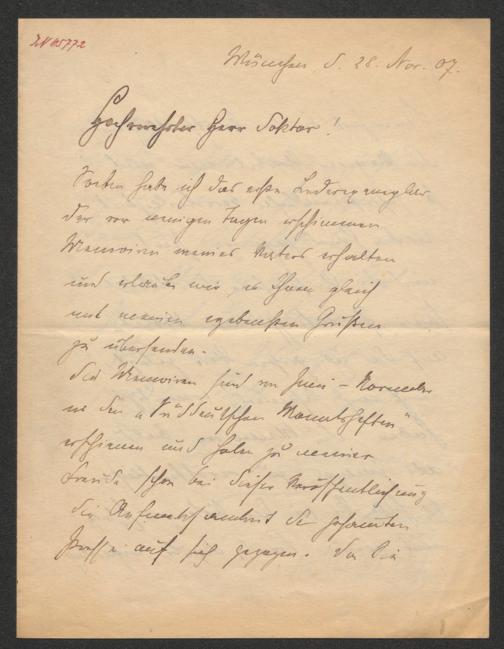 München d. 28. Nov. 07.
Hochverehrter Herr Doktor!
Soeben habe ich das erste Lederexemplar
der vor wenigen Tagen erschienenen
Memoiren meines Vaters erhalten
und erlaube mir, es Ihnen gleich
mit meinen ergebensten Grüßen
zu übersenden.
Die Memoiren sind von Juni - November
in den "Süddeutschen Monatsheften"
erschienen und haben zu meiner
Freude schon bei dieser Veröffentlichung
die Aufmerksamkeit der gesamten
Presse auf sich gezogen. Da Sie